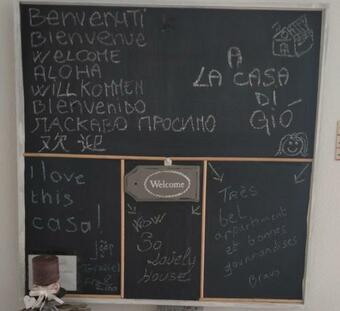 BENVENUTI
Bienvenue
WELCOME
ALOHA
WILLKOMMEN
Bienvenido
ЛАСКАВО ПРОСИМО
欢迎
A
LA CASA
DI
GIÓ
I love
this
casa!
Welcome
WOW
So
Lovely
House
Très
bel
appartement
et bonnes
gourmandises
Bravo